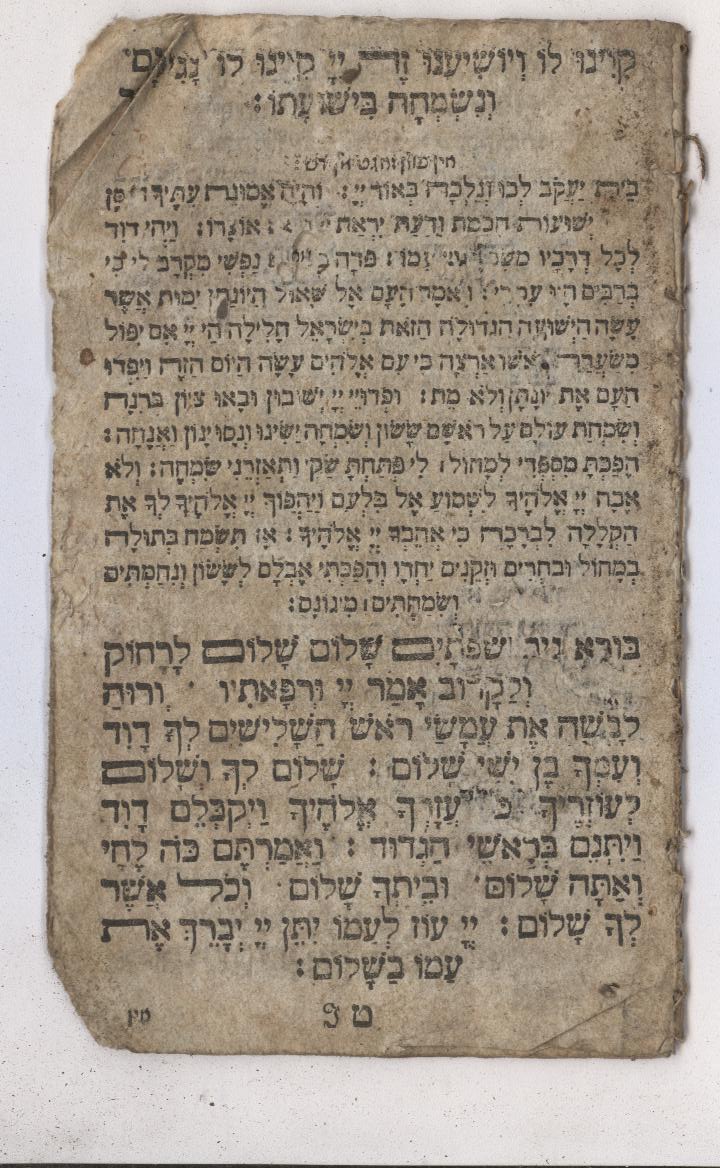 קִוִּינוּ לוֹ וְיוֹשִׁיעֵנוּ זֶה יְיָ קִוִּינוּ לוֹ נָגִילָה
וְנִשְׂמְחָה בִּישׁוּעָתוֹ:
בֵּית יַעֲקֹב לְכוּ וְנֵלְכָה בְּאוֹר יְיָ: וְהָיָה אֱמוּנַת עִתֶּיךָ חֹסֶן
יְשׁוּעוֹת חָכְמַת וָדַעַת יִרְאַת אוֹצָרוֹ: וַיְהִי דָוִד
לְכָל דְּרָכָיו פָּדָה נַפְשִׁי מִקְרָב לִי כִּי
בְרַבִּים הָיוּ עִמָּדִי: וַיֹּאמֶר הָעָם אֶל שָׁאוּל הֲיוֹנָתָן יָמוּת אֲשֶׁר
עָשָׂה הַיְשׁוּעָה הַגְּדוֹלָה הַזֹּאת בְּיִשְׂרָאֵל חָלִילָה חַי יְיָ אִם יִפּוֹל
מִשַּׂעֲרַת רֹאשׁוֹ אַרְצָה כִּי עִם אֱלֹהִים עָשָׂה הַיּוֹם הַזֶּה וַיִּפְדּוּ
הָעָם אֶת יוֹנָתָן וְלֹא מֵת: וּפְדוּיֵי יְיָ יְשׁוּבוּן וּבָאוּ צִיּוֹן בְּרִנָּה
וְשִׂמְחַת עוֹלָם עַל רֹאשָׁם שָׂשׂוֹן וְשִׂמְחָה יַשִּׂיגוּ וְנָסוּ יָגוֹן וַאֲנָחָה:
הָפַכְתָּ מִסְפְּדִי לְמָחוֹל לִי פִּתַּחְתָּ שַׂקִּי וַתְּאַזְּרֵנִי שִׂמְחָה: וְלֹא
אָבָה יְיָ אֱלֹהֶיךָ לִשְׁמוֹעַ אֶל בִּלְעָם וַיַּהֲפוֹךְ יְיָ אֱלֹהֶיךָ לְךָ אֶת
הַקְּלָלָה לִבְרָכָה כִּי אֲהֵבְךָ יְיָ אֱלֹהֶיךָ: אָז תִּשְׂמַח בְּתוּלָה
בְּמָחוֹל וּבַחֻרִים וּזְקֵנִים יַחְדָּו וְהָפַכְתִּי אֶבְלָם לְשָׂשׂוֹן וְנִחַמְתִּים
וְשִׂמַּחְתִּים מִיגוֹנָם:
בּוֹרֵא נִיב שְׂפָתַיִם שָׁלוֹם שָׁלוֹם לָרָחוֹק
וְלַקָּרוֹב אָמַר יְיָ וּרְפָאתִיו וְרוּחַ
לָבְשָׁה אֶת עֲמָשַׂי רֹאשׁ הַשָּׁלִישִׁים לְךָ דָוִד
וְעִמְּךָ בֶן יִשַׁי שָׁלוֹם: שָׁלוֹם לְךָ וְשָׁלוֹם
לְעוֹזְרֶיךָ כִּי עֲזָרְךָ אֱלֹהֶיךָ וַיְקַבְּלֵם דָּוִד
וַיִּתְּנֵם בְּרָאשֵׁי הַגְּדוּד: וַאֲמַרְתֶּם כֹּה לֶחָי
וְאַתָּה שָׁלוֹם וּבֵיתְךָ שָׁלוֹם וְכֹל אֲשֶׁר
לְךָ שָׁלוֹם: יְיָ עוֹז לְעַמּוֹ יִתֵּן יְיָ יְבָרֵךְ אֶת
עַמּוֹ בַשָּׁלוֹם:
ט